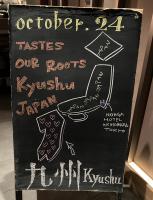 october. 24
TASTES
OUR ROOTS
Kyushu
JAPAN
HOTEL
TOKYO
九州 Kyushu